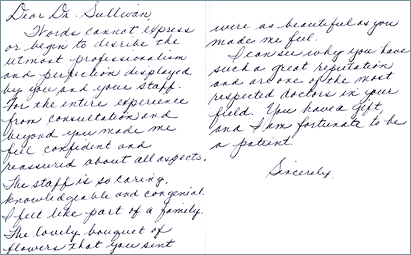 Dear Dr. Sullivan,
Words cannot express
or begin to discribe the
utmost professionalism
and perfection displayed
by you and your staff.
For the entire experience
from consultation and
beyond you made me
feel confident and
reassured about all aspects.
The staff is so caring,
knowledgeable and congenial.
I felt like part of a family.
The lovely bouquet of
flowers that you sent
were as beautiful as you
made me feel.
I can see why you have
such a great reputation
and are one of the most
respected doctors in your
field. You have a gift,
and I am fortunate to be
a patient.
Sincerely,